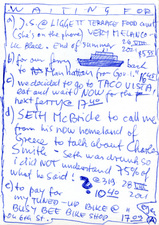 WAITING FOR
a) J.S @ LIGGETT TERRACE FOOD COURT
(she's on phone) VERY MELANCHO-
LIC Place. End of Summer
b) for our ferry back
to Manhattan for G.I.
c) we decided to go to TACO VISTA
eat and wait NOW for the
next ferry 17 40
d) SETH MCBride to call me
from his now homeland of
Greece to talk about Charles
Smith. Seth was drunk so
i did NOT understand 75% of
what he said
e) to pay for
my TUNED-UP BIKE @
BUSY BEE BIKE SHOP
on 6th St. 17.09